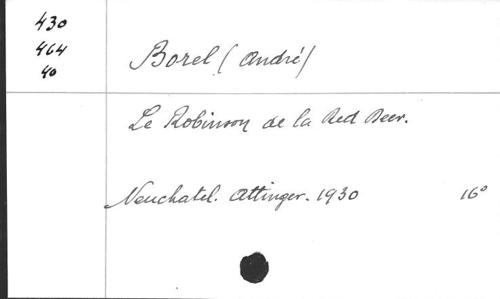 430
464
40
Borel (André)
Le Robinson de la Red Deer.
Neuchatel. Attinger. 1930 16°